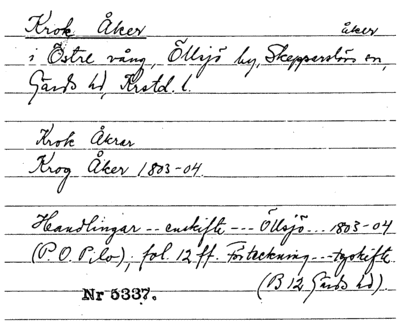 Krok Åker åker
i Östre vång, Öllsjö by, Skepparslövs sn,
Gärds hd, Krstd. l.
Krok Åkrar
Krog Åker 1803-04.
Handlingar -- enskifte --- Öllsjö... 1803-04
(P. O. Pilo), fol. 12 ff. Förteckning --- egoskifte
(B 12 Gärds hd).
Nr 5337.